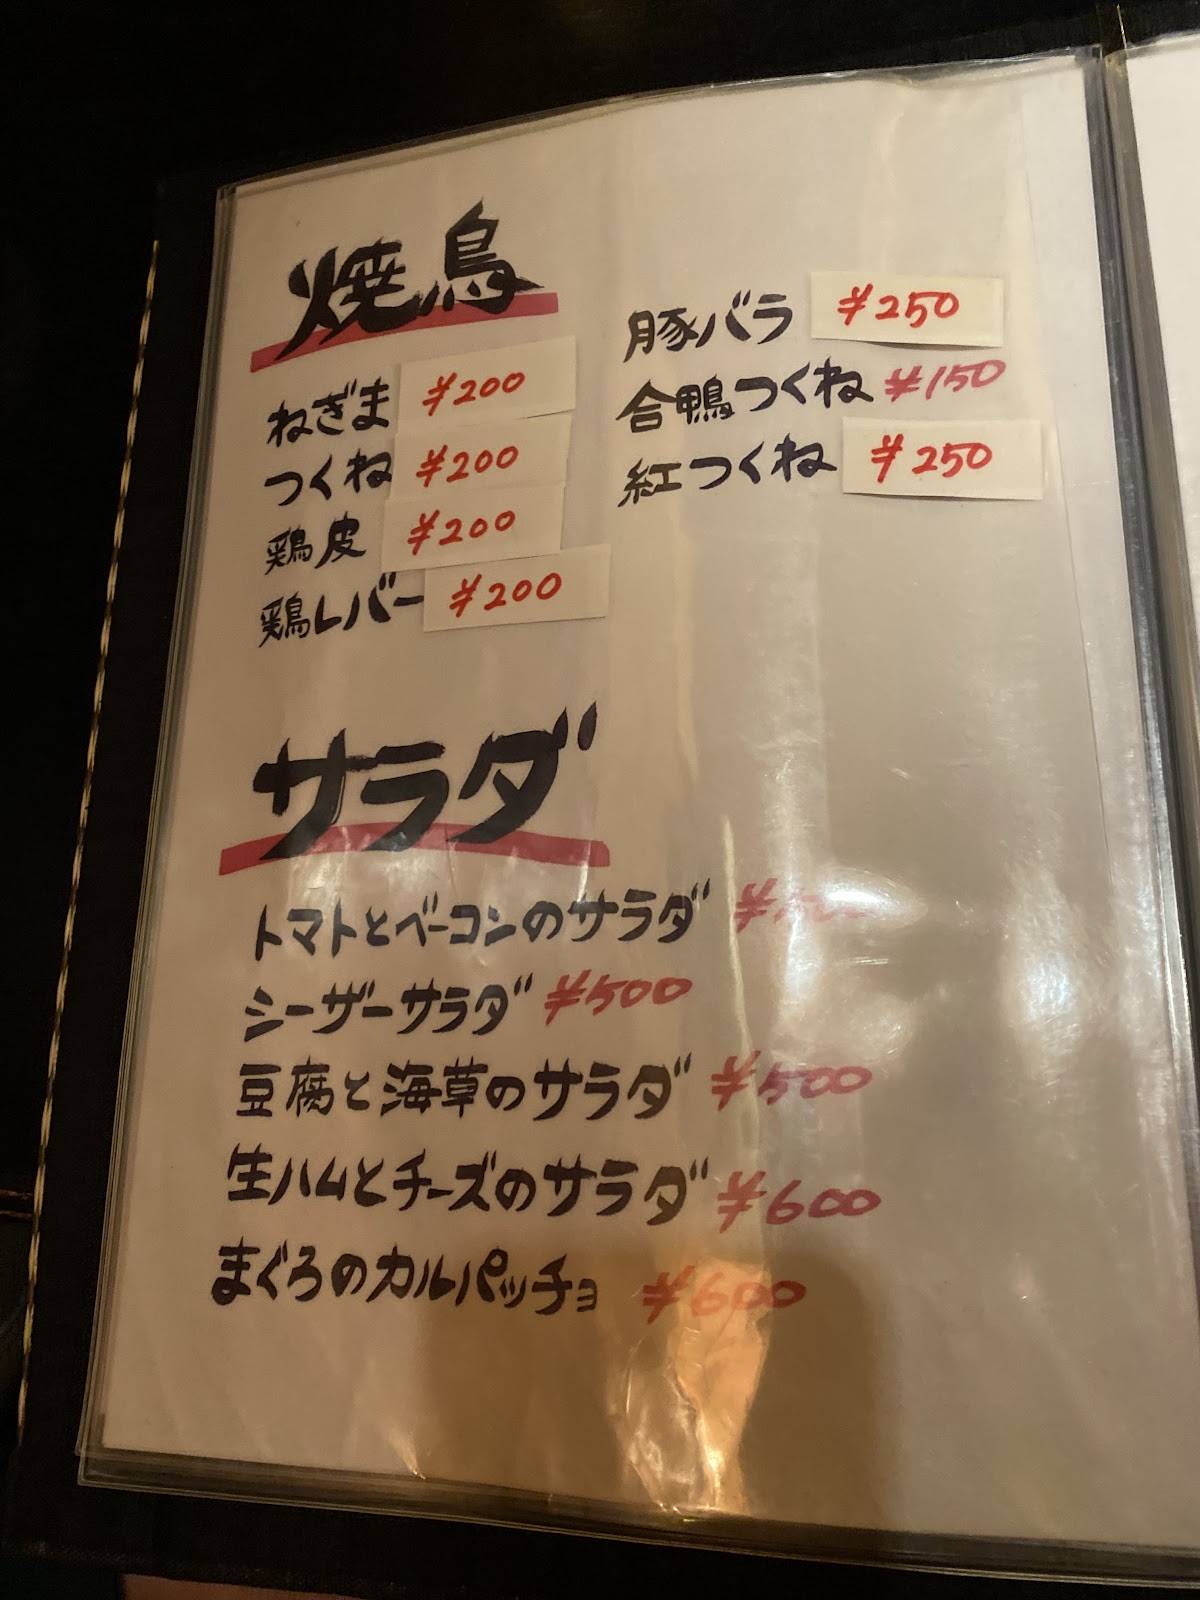 焼鳥
ねぎま ¥200
つくね ¥200
鶏皮 ¥200
鶏レバー ¥200
豚バラ ¥250
合鴨つくね ¥150
紅つくね ¥250
サラダ
トマトとベーコンのサラダ
シーザーサラダ ¥500
豆腐と海草のサラダ ¥500
生ハムとチーズのサラダ ¥600
まぐろのカルパッチョ ¥600